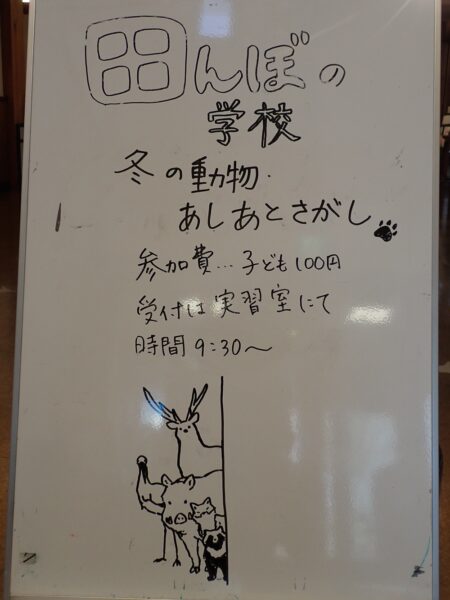 田んぼの
学校
冬の動物
あしあとさがし
参加費…子ども100円
受付は実習室にて
時間9:30〜